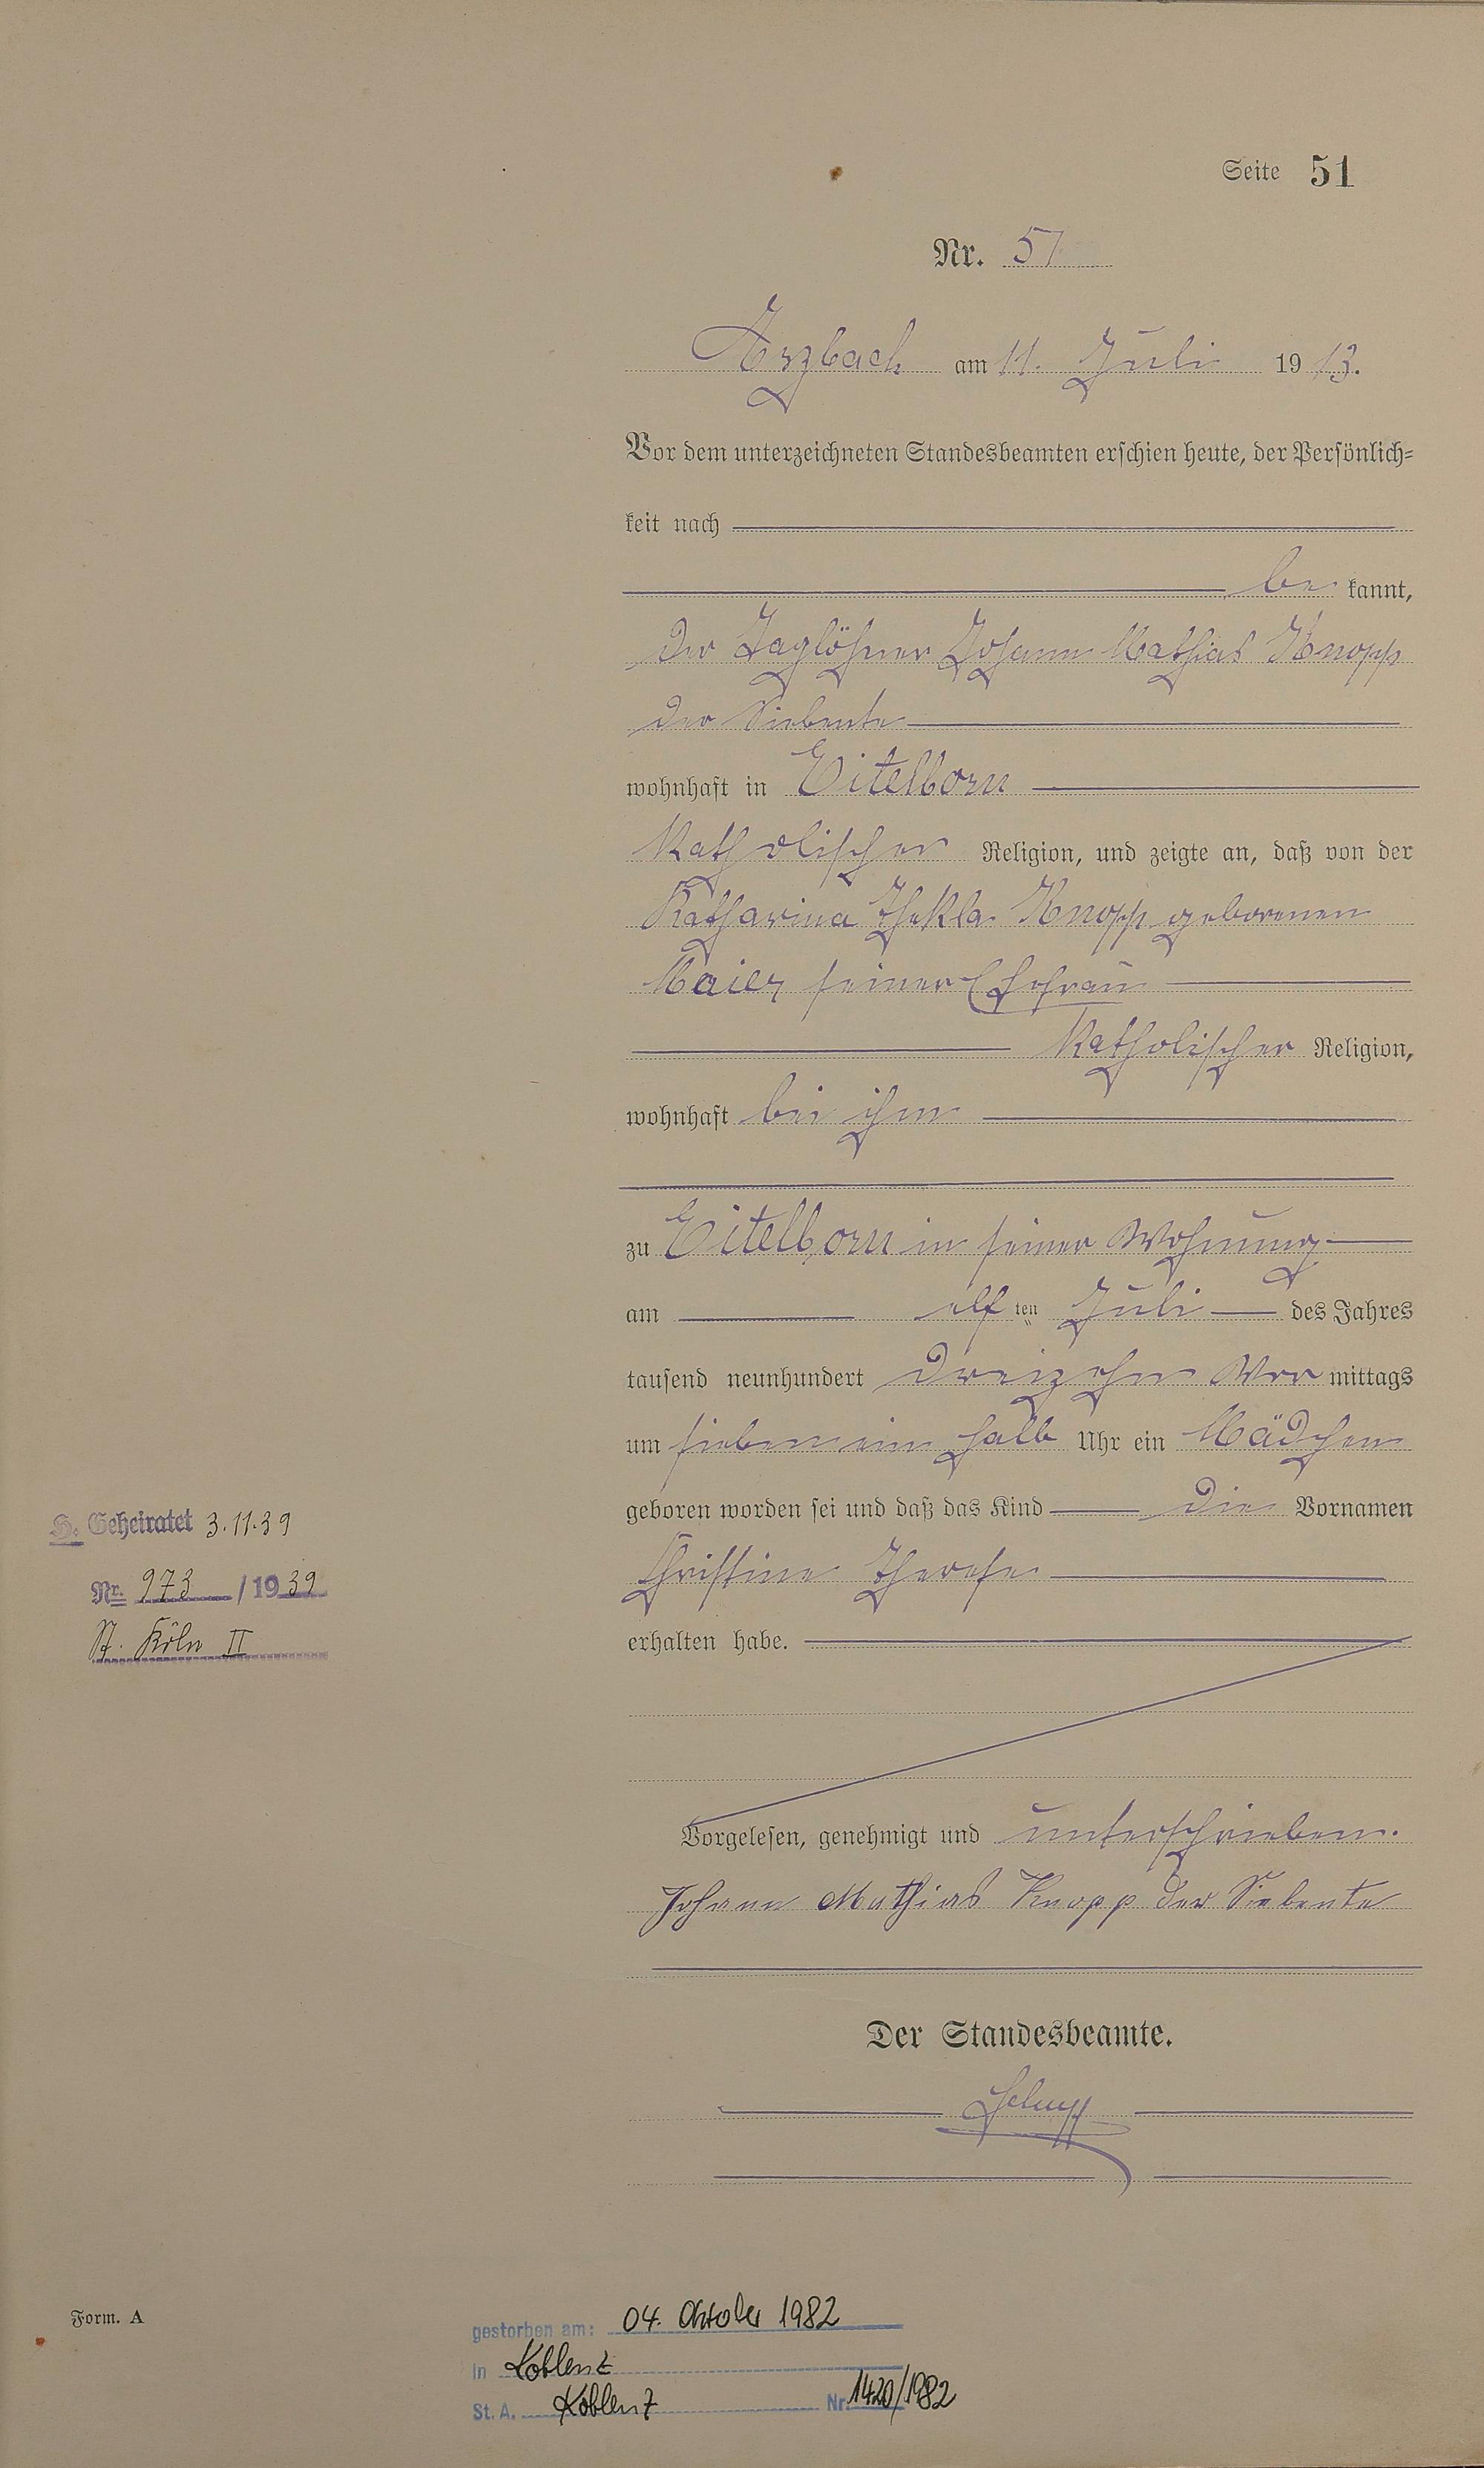 Seite 51
Nr. 51
Arzbach am 11. Juli 1913.
Vor dem unterzeichneten Standesbeamten erschien heute, der Persönlich=
keit nach
be kannt,
der Taglöhner Johann Mathias Knopp
der Siebente
wohnhaft in Eitelborn
katholischer Religion, und zeigte an, daß von der
Katharina Thekla Knopp geborenen
Maier seiner Ehefrau
katholischer Religion,
wohnhaft bei ihm
zu Eitelborn in seiner Wohnung
am elf ten Juli des Jahres
tausend neunhundert dreizehn Vor mittags
um sieben ein halb Uhr ein Mädchen
geboren worden sei und daß das Kind die Vornamen
H. Geheiratet 3.11.39
Nr. 973 / 1939
St. Köln II
Christine Therese
erhalten habe.
Vorgelesen, genehmigt und unterschrieben.
Johann Mathias Knopp der Siebente
Der Standesbeamte.
Form. A
gestorben am: 04. Oktober 1982
in Koblenz
St. A. Koblenz Nr. 1420/1982